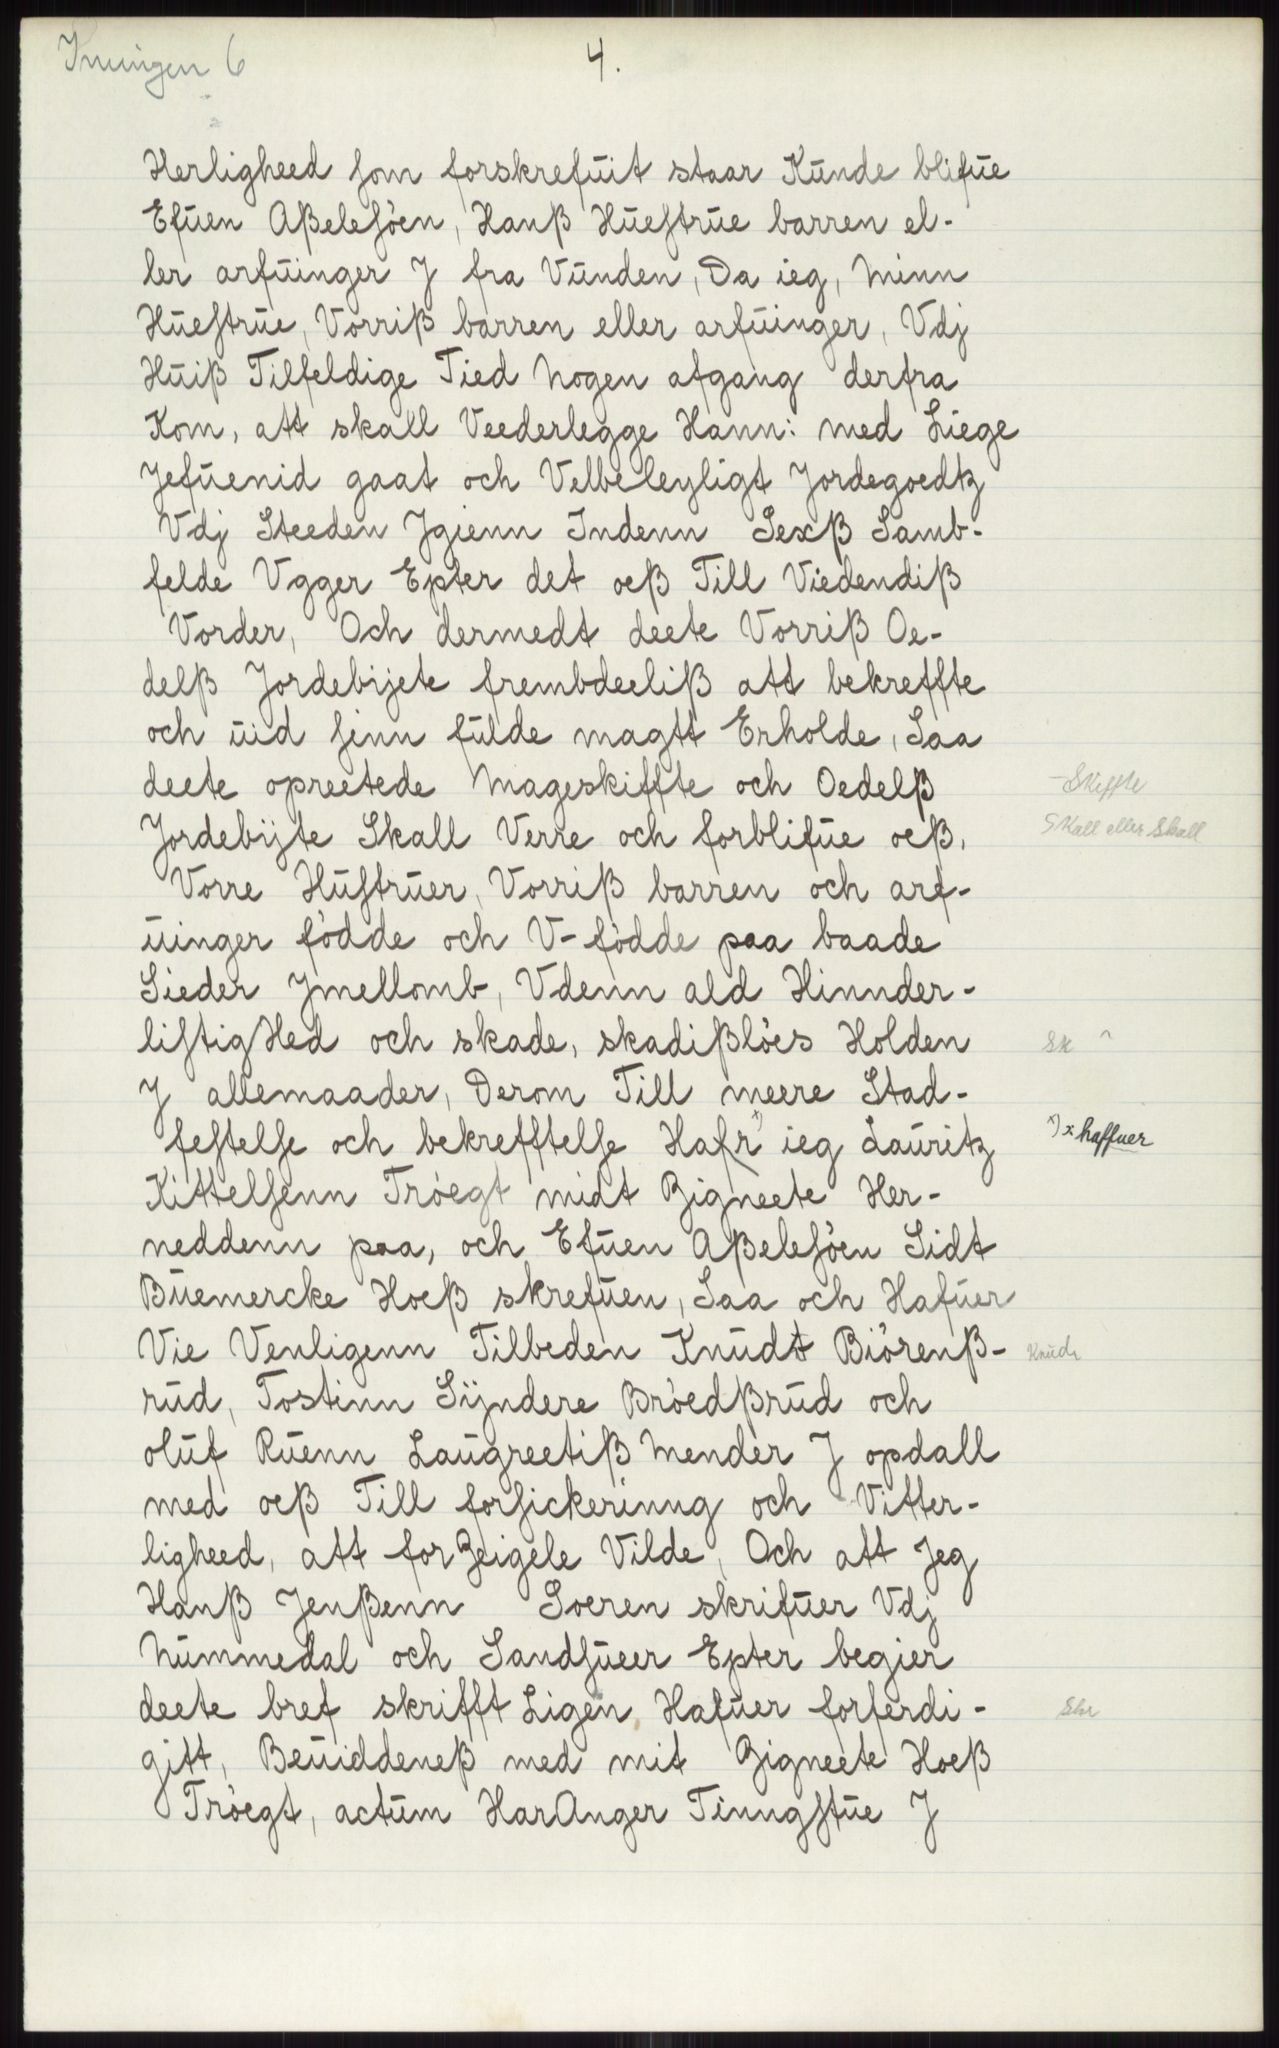 4.
Herligheed som forskrefuit staar Kunde blifue
Efuen Aßelesöen, Hanß Huestrue barren el-
ler arfuinger J fra Vunden, Da ieg, Minn
Huestrue, Vorriß barren eller arfuinger, Vdj
Huiß Tilfeldige Tied Nogen afgang derfra
Kom, att skall Veederlegge Hann: med Liege
Jefuenid gaat och Velbeleyligt Jordegoedtz
Vdj Steeden Jgienn Indenn Sexß Samb-
felde Vgger Epter det oeß Till Viedendiß
Vorder, Och dermedt deete Vorriß Oe-
delß Jordebijete frembdeeliß att bekreffte
och uid sinn fulde magtt Erholde, Saa
deete opreetede Mageskiffte och Oedelß
Skiffte
Jordebijte Skall Verre och forblifue oeß,
Skall eller Skall
Vorre Hustruer, Vorriß barren och arf-
uinger födde och V-födde paa baade
Sieder Jmellomb, Vdenn ald Hinnder-
listigHed och skade, skadißlöes Holden
sk
J allemaader, Derom Till meere Stad-
festelse och bekrefftelse Hafr x) ieg Lauritz
x) x haffuer
Kittelsenn Tröegt midt Zigneete Her-
neddenn paa, och Efuen Aßelesöen Sidt
Buemercke Hoeß skrefuen, Saa och Hafuer
Vie Venligenn Tilbeden Knudt Biörenß-
Knudt
rud, Tostinn Sijndere Bröedßrud och
oluf Ruenn Laugreetiß Mender J opdall
med oeß Till forsickerinng och Vitter-
ligheed, att forZeigele Vilde, Och att Jeg
Hanß Jenßenn Soeren skrifuer Vdj
Nummedal och Sandsueer Epter begier
deete bref skrifft Ligen Hafuer forferdi-
gitt, Beuiddeneß med mit Zigneete Hoeß
Tröegt, actum HarAnger Tinngstue J